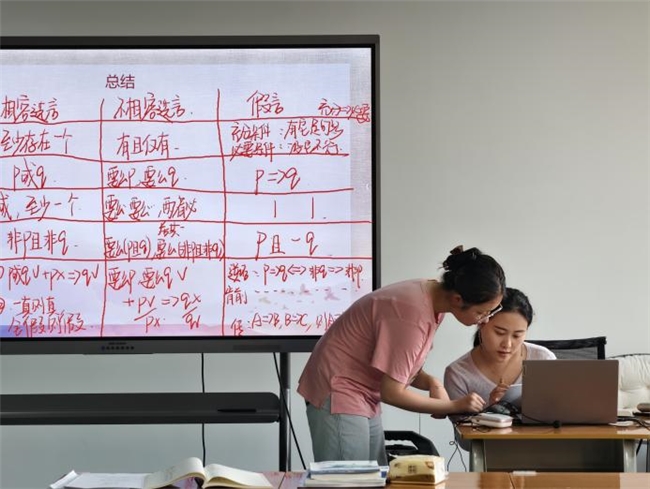 总结
相容选言 不相容选言 假言 充分=>必要
至少存在一个 有且仅有 充分条件：有它足够
必要条件：没它不行
p或q 要么p,要么q p=>q
或,至少一个 要么要么,两者必
居其一
非p且非q 要么(p且q),要么(非p且非q) p且-q
p或q√+p×=>q√ 要么p,要么q√ p=>q<=>非q=>非p
一真则真 +p√=>q× 肯前
全假则假 p× q√ 传:A=>B,B=>C,